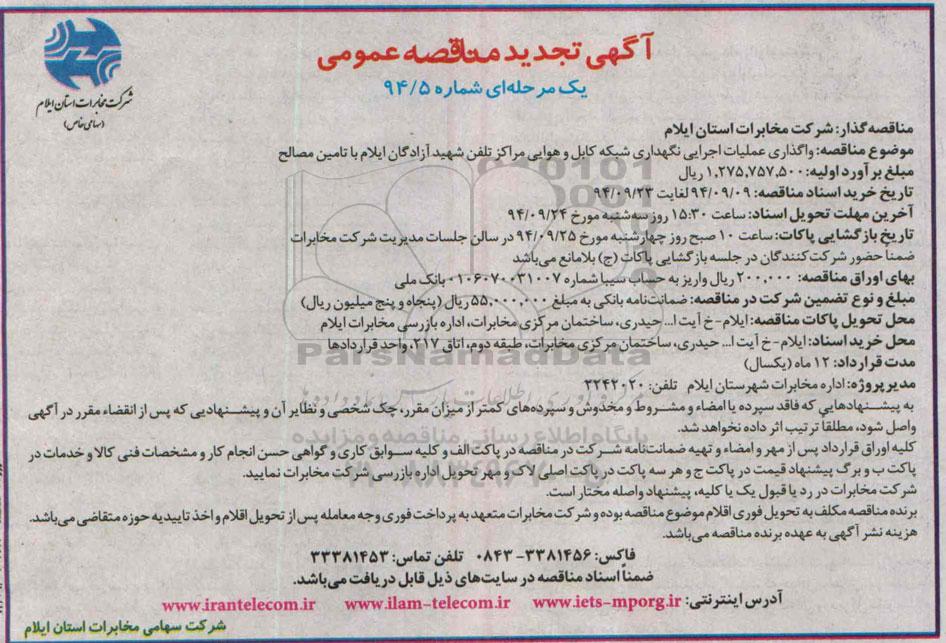 شرکت مخابرات استان ایلام
(سهامی خاص)
آگهی تجدید مناقصه عمومی
یک مرحله‌ای شماره ۹۴/۵
مناقصه‌گذار: شرکت مخابرات استان ایلام
موضوع مناقصه: واگذاری عملیات اجرایی نگهداری شبکه کابل و هوایی مراکز تلفن شهید آزادگان ایلام با تامین مصالح
مبلغ برآورد اولیه: ۱,۲۷۵,۷۵۷,۵۰۰ ریال
تاریخ خرید اسناد مناقصه: ۹۴/۰۹/۰۹ لغایت ۹۴/۰۹/۲۳
آخرین مهلت تحویل اسناد: ساعت ۱۵:۳۰ روز سه‌شنبه مورخ ۹۴/۰۹/۲۴
تاریخ بازگشایی پاکات: ساعت ۱۰ صبح روز چهارشنبه مورخ ۹۴/۰۹/۲۵ در سالن جلسات مدیریت شرکت مخابرات
ضمناً حضور شرکت‌کنندگان در جلسه بازگشایی پاکات (ج) بلامانع می‌باشد
بهای اوراق مناقصه: ۲۰۰,۰۰۰ ریال واریز به حساب سیبا شماره ۰۱۰۶۰۷۰۰۳۱۰۰۷ بانک ملی
مبلغ و نوع تضمین شرکت در مناقصه: ضمانت‌نامه بانکی به مبلغ ۵۵,۰۰۰,۰۰۰ ریال (پنجاه و پنج میلیون ریال)
محل تحویل پاکات مناقصه: ایلام-خ آیت ا... حیدری، ساختمان مرکزی مخابرات، اداره بازرسی مخابرات ایلام
محل خرید اسناد: ایلام-خ آیت ا... حیدری، ساختمان مرکزی مخابرات، طبقه دوم، اتاق ۲۱۷، واحد قراردادها
مدت قرارداد: ۱۲ ماه (یکسال)
مدیر پروژه: اداره مخابرات شهرستان ایلام تلفن: ۳۲۴۲۰۲۰
به پیشنهادهایی که فاقد سپرده یا امضاء و مشروط و مخدوش و سپرده‌های کمتر از میزان مقرر، چک شخصی و نظایر آن و پیشنهادیی که پس از انقضاء مقرر در آگهی
واصل شود، مطلقاً ترتیب اثر داده نخواهد شد.
کلیه اوراق قرارداد پس از مهر و امضاء و تهیه ضمانت‌نامه شرکت در مناقصه در پاکت الف و کلیه سوابق کاری و گواهی حسن انجام کار و مشخصات فنی کالا و خدمات در
پاکت ب و برگ پیشنهاد قیمت در پاکت ج و هر سه پاکت در پاکت اصلی لاک و مهر تحویل اداره بازرسی شرکت مخابرات نمایید.
شرکت مخابرات در رد یا قبول یک یا کلیه، پیشنهاد واصله مختار است.
برنده مناقصه مکلف به تحویل فوری اقلام موضوع مناقصه بوده و شرکت مخابرات متعهد به پرداخت فوری وجه معامله پس از تحویل اقلام و اخذ تاییدیه حوزه متقاضی می‌باشد.
هزینه نشر آگهی به عهده برنده مناقصه می‌باشد.
فاکس: ۳۳۸۱۴۵۶-۰۸۴۳ تلفن تماس: ۳۳۳۸۱۴۵۳
ضمناً اسناد مناقصه در سایت‌های ذیل قابل دریافت می‌باشد.
آدرس اینترنتی: www.iets-mporg.ir www.ilam-telecom.ir www.irantelecom.ir
شرکت سهامی مخابرات استان ایلام
ParsNamadData
پایگاه اطلاع رسانی مناقصه و مزایده